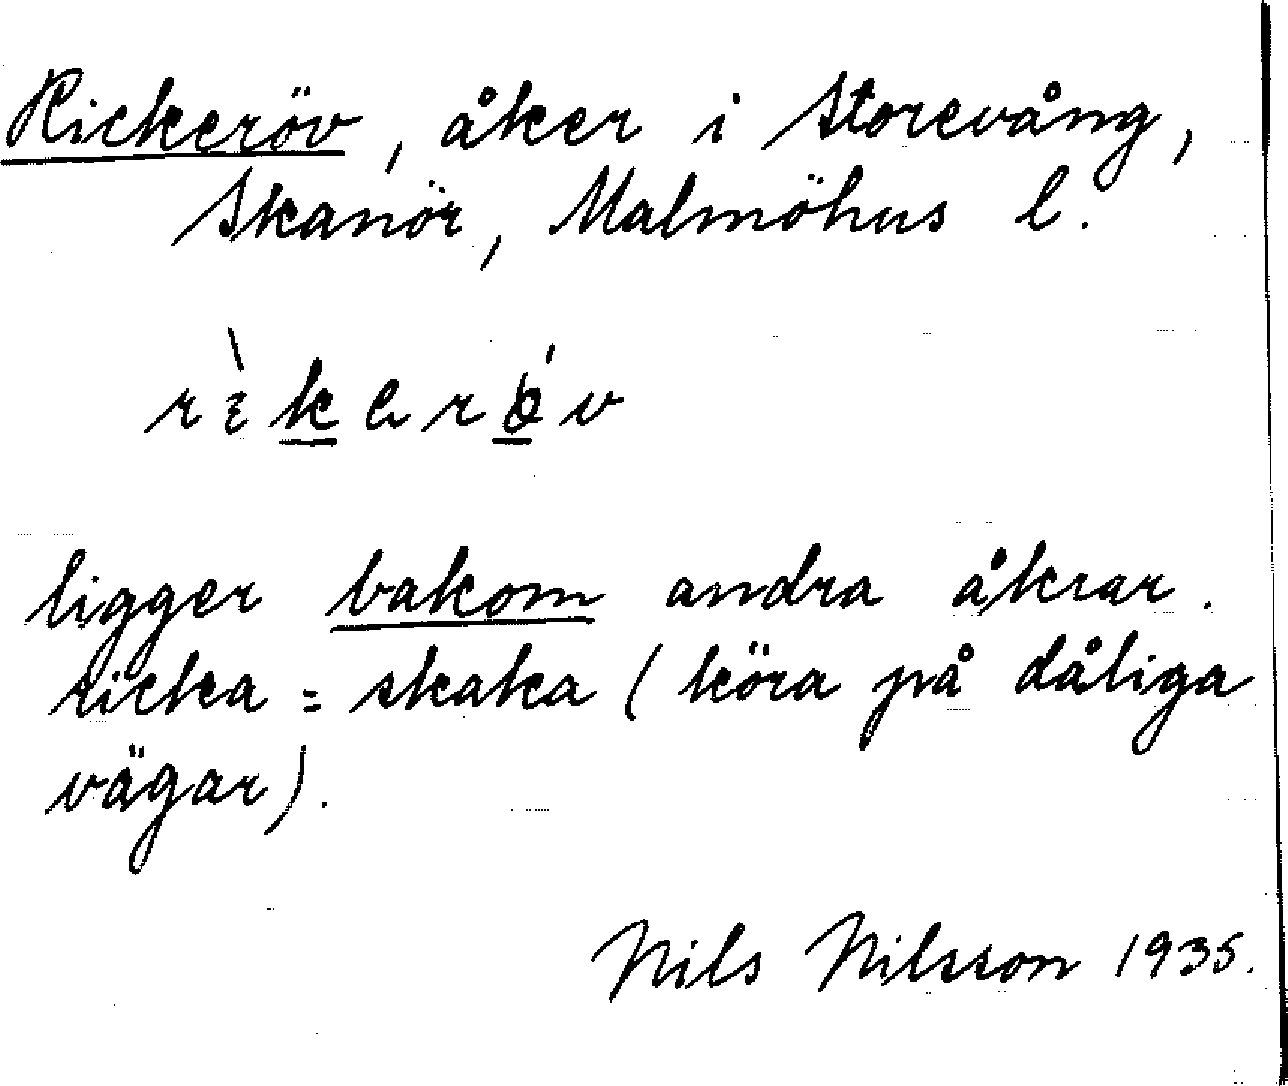 Rickeröv, åker i Storevång,
Skanör, Malmöhus l.
ligger bakom andra åkrar.
ricka = skaka (köra på dåliga
vägar).
Nils Nilsson 1935.